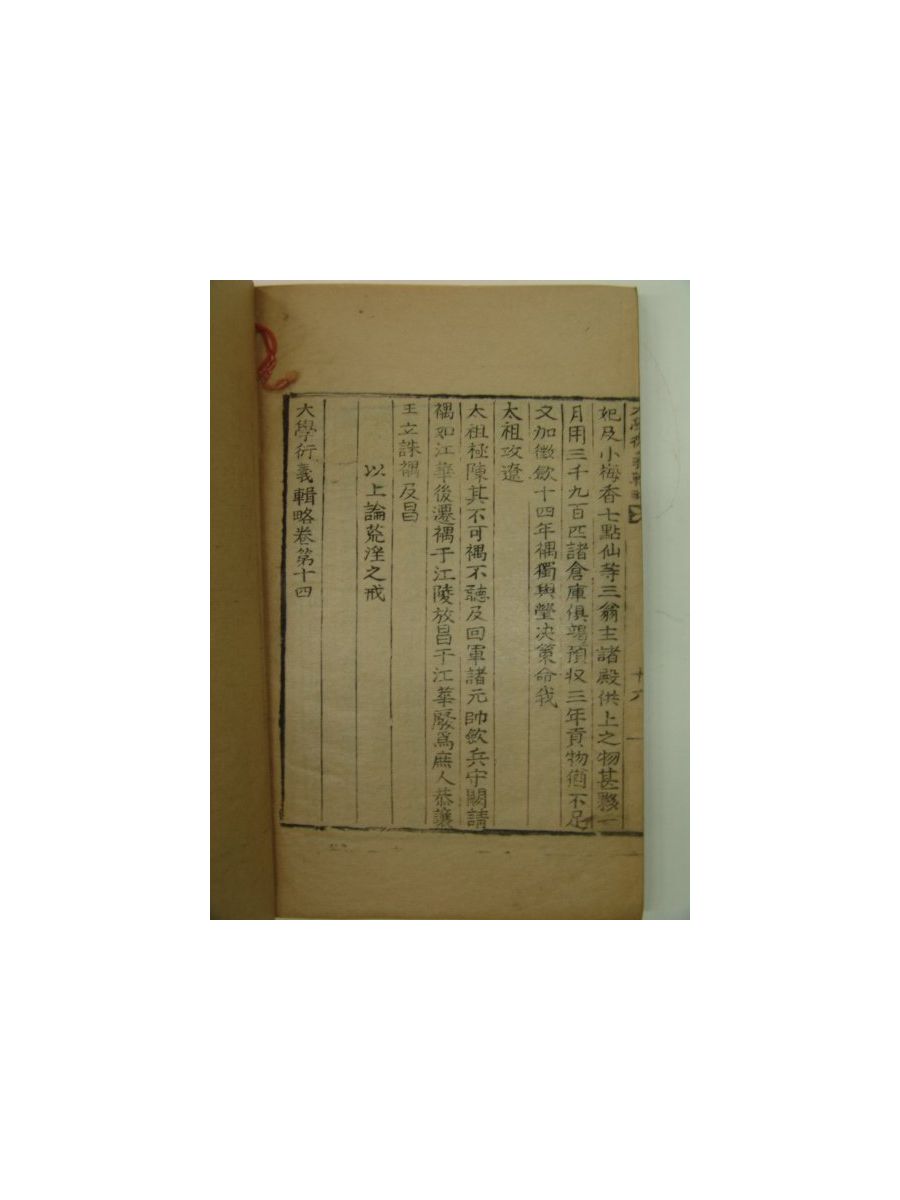 大學衍義輯略 十六
妃及小梅香七點仙等三翁主諸殿供上之物甚夥一
月用三千九百匹諸倉庫俱竭預収三年貢物猶不足
又加徵斂十四年禑獨與瑩決策命我
太祖攻遼
太祖極陳其不可禑不聽及回軍諸元帥斂兵守闕請
禑如江華後遷禑于江陵放昌于江華廢爲庶人恭讓
王立誅禑及昌
以上論荒淫之戒
大學衍義輯略卷第十四